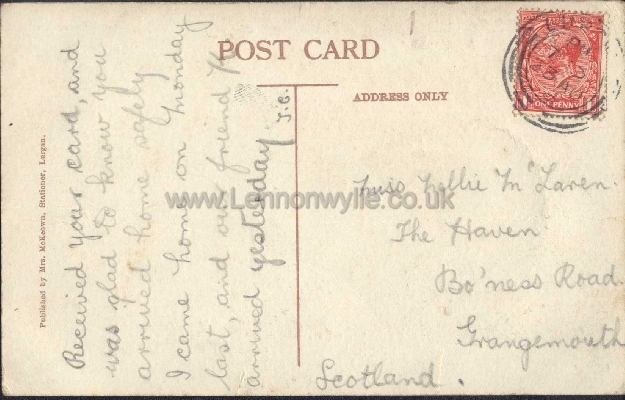 POST CARD
ADDRESS ONLY
ONE PENNY
Published by Mrs. McKeown, Stationer, Lurgan.
Received your card, and
was glad to know you
arrived home safely
I came home on Monday
last, and our friend
arrived yesterday J.C.
Miss Nellie McLaren.
The Haven
Bo'ness Road.
Grangemouth
Scotland.
www.Lennonwylie.co.uk